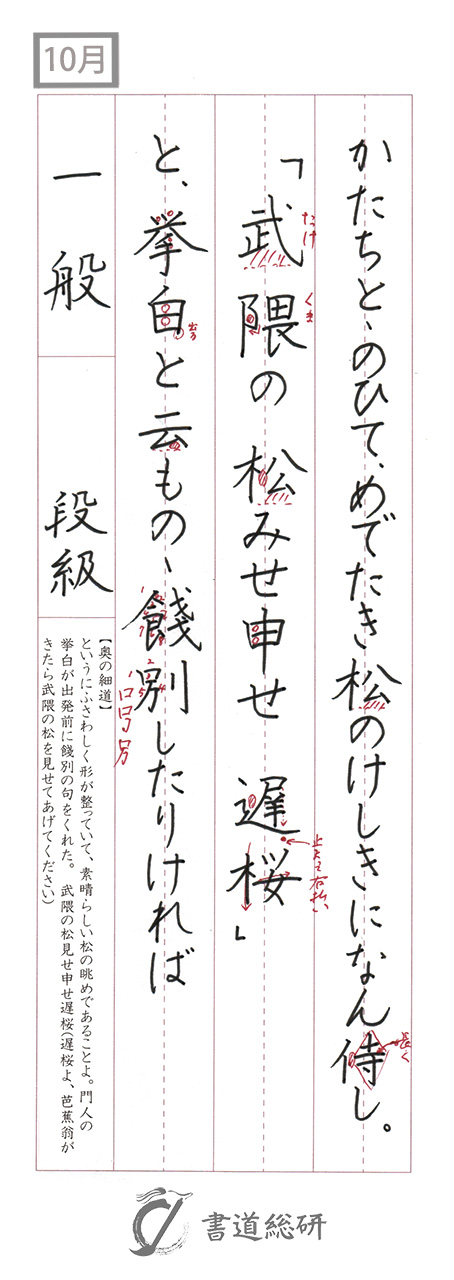 10月
かたちとゝのひて、めでたき松のけしきになん侍し。
「武隈の松みせ申せ 遅桜」
たけ
くま
止めて右払い
長く
と、挙白と云ものゝ餞別したりければ
出る
一般
段級
【奥の細道】
というにふさわしく形が整っていて、素晴らしい松の眺めであることよ。門人の
挙白が出発前に餞別の句をくれた。 武隈の松見せ申せ遅桜(遅桜よ、芭蕉翁が
きたら武隈の松を見せてあげてください)
書道総研